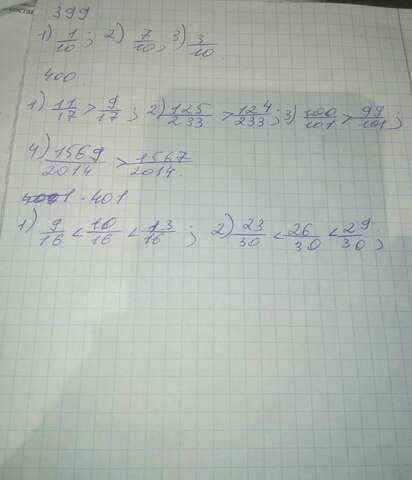 399
1) 1/10; 2) 7/10, 3) 3/10
400
1) 11/17 > 9/17; 2) 125/233 > 124/233; 3) 100/101 > 99/101;
4) 1569/2014 > 1567/2014.
401
1) 9/16 < 10/16 < 13/16; 2) 23/30 < 26/30 < 29/30;